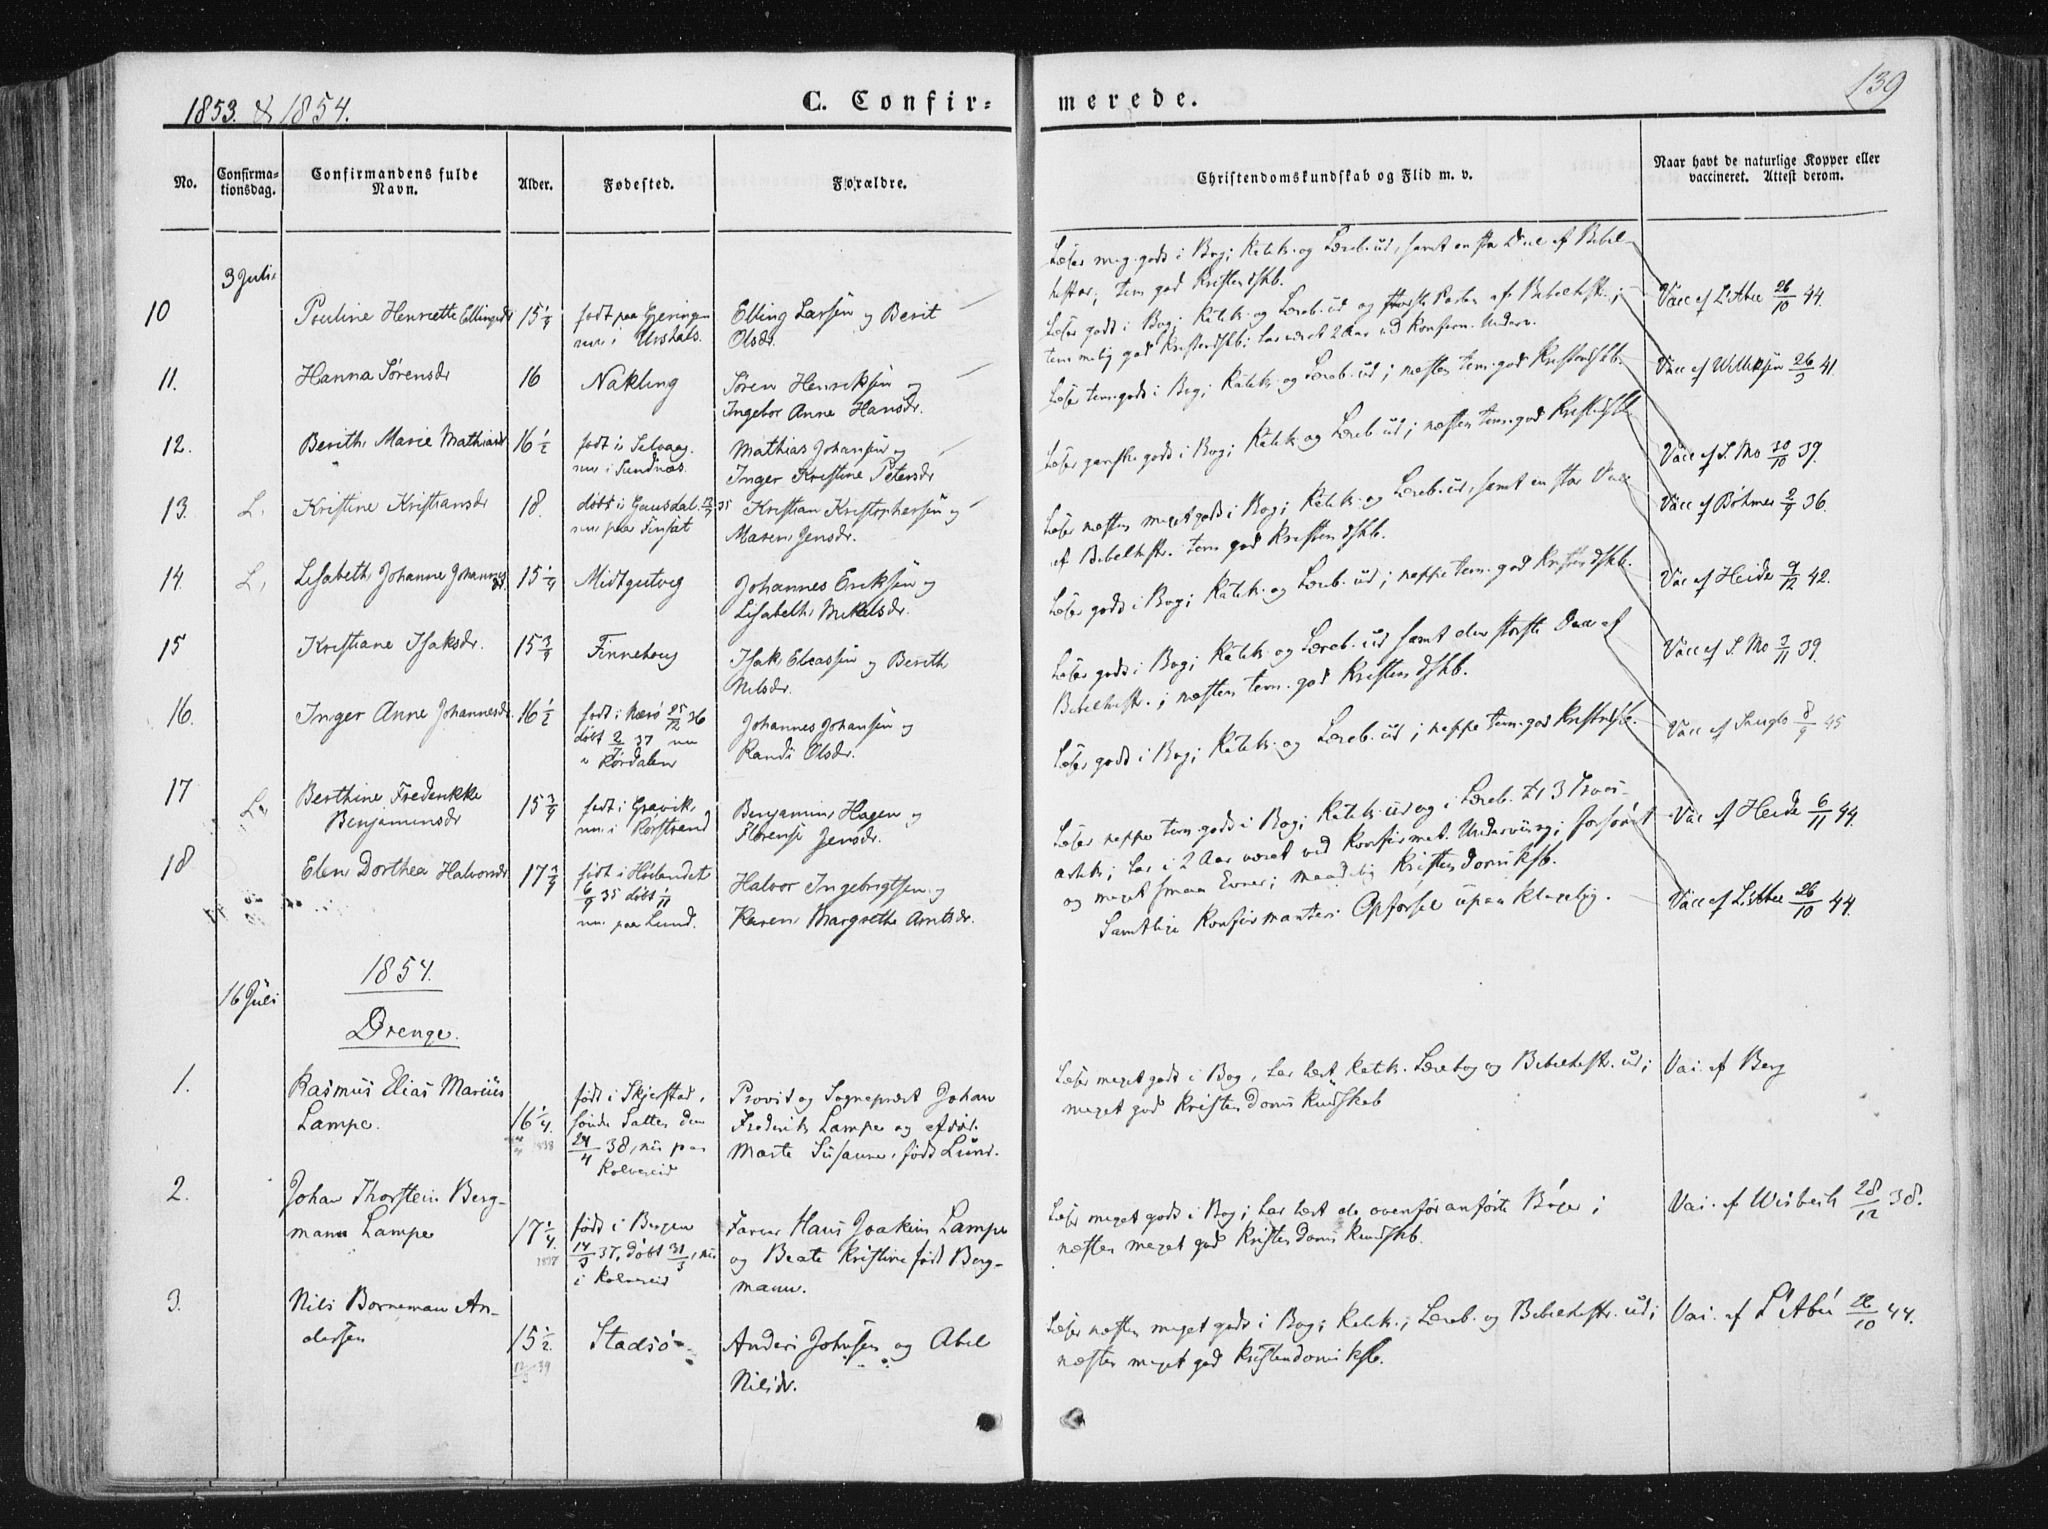 1853. & 1854.
C. Confir-
merede.
139
No.
Confirma-
tionsdag.
Confirmandens fulde
Navn.
Alder.
Fødested.
Forældre.
Christendomskundskab og Flid m. v.
Naar havt de naturlige Kopper eller
vaccineret. Attest derom.
3 Juli
10
Pouline Henriette Ellingsdr
15 1/4
født paa Gjeringen
nu i
Elling Larsen og Berit
Olsdr.
Læser meg. godt i Bog; Katek. og Læreb. ud, samt en stor Deel af Bibel-
histor; tem god Kristendskb.
Vacc af L'Abee 26/10 44.
11.
Hanna Sørensdr
16
Nakling
Søren Henriksen og
Ingebor Anne Hansdr.
Læser godt i Bog; Katek. og Læreb. ud og største Parten af Bibelhist.;
temmelig god Kristendskb; har været 2 Aar ved Konfirm. Underv.
Vacc af 26/9 41.
12.
Berith Marie Mathiasdr
16 1/2
født i Selvaag.
nu i Sundnæs.
Mathias Johansen og
Inger Kristine Petersdr
Læser tem godt i Bog; Katek. og Læreb. ud; næsten tem. god Kristendskb.
Vacc af S. Mo 30/10 39.
13.
L.
Kristine Kristiansdr
18.
døbt i Gausdal 35
nu paa
Kristian Kristophersen og
Maren Jensdr.
Læser ganske godt i Bog; Katek. og Læreb. ud; næsten tem. god Kristendskb
Vacc af Bøhmer 2/9 36.
14.
L.
Lisabeth Johanne Johannes
dr.
15 1/4
Midtgutvig
Johannes Eriksen og
Lisabeth Mikelsdr.
Læser næsten meget godt i Bog; Katek. og Læreb. ud, samt en stor Deel
af Bibelhistr. tem god Kristendskb.
Vac af Heide 9/12 42.
15
Kristiane Isaksdr.
15 3/4
Finnehoug
Isak Eleassen og Berith
Nilsdr.
Læser godt i Bog; Katek. og Læreb. ud; neppe tem. god Kristendskb.
Vacc af S. Mo 3/11 39.
16.
Inger Anne Johannesdr.
16 1/2
født i Nærø 25/12 36
døbt 2/ 37 nu
i Kordalen
Johannes Johansen og
Randi Olsdr.
Læser godt i Bog; Katek. og Læreb. ud samt den største Deel af
Bibelhistr.; næsten tem. god Kristendskb.
Vacc af 8/9 45
17
L.
Berthine Frederikke
Benjaminsdr
15 3/4
født i Gravik
nu i Rørstrand
Benjamin Hagen og
Florense Jensdr.
Læser godt i Bog; Katek. og Læreb. ud; neppe tem. god Kristendskb.
Vac af Heide 6/11 44.
18
Elen Dorthea Halvorsdr
17 3/4
født i Høilandet
6/9 35 døbt /11
nu paa Lund.
Halvor Ingebrigtsen og
Karen Margrethe Arntsdr.
Læser neppe tem godt i Bog; Katek. ud og i Læreb. til 3 Troes-
artik; har i 2 Aar været ved Konfirmat. Underviisng; forsømt
og meget smaa Evner; maadelig Kristendomskb.
Samtlige Konfirmanters Opførsel upaaklagelig.
Vacc af L'Abee 26/10 44.
1854.
16 Juli
Drenge.
1.
Rasmus Elias Marius
Lampe.
16 1/4.
1838
født i Skjerstad,
Søndre Salten den
24/4 38, nu paa
Kolvereid
Provst og Sognepræst Johan
Frederik Lampe og afdøde
Marte Susanne, født Lund.
Læser meget godt i Bog, har læst Katek. Lærebog og Bibelhistr. ud;
meget god Kristendoms Kundskab
Vai. af Berg
2.
Johan Thorstein Berg-
mann Lampe
17 1/4.
1837
født i Bergen
14/3 37, døbt 31/3, nu
i Kolvereid
Farver Hans Joakim Lampe
og Beate Kristine født Berg-
mann.
Læser meget godt i Bog; har læst de ovenfor anførte Bøger;
næsten meget god Kristendoms Kundskb.
Vai. af Wisbech 28/12 38.
3.
Nils Borneman An-
dersen
15 1/2.
12/3 39
Stadsø
Anders Johnsen og Abel
Nilsdr.
Læser næsten meget godt i Bog; Katek.; Læreb. og Bibelhistr. ud;
næsten meget god Kristendomskb.
Vai. af L'Abee 26/10 44.